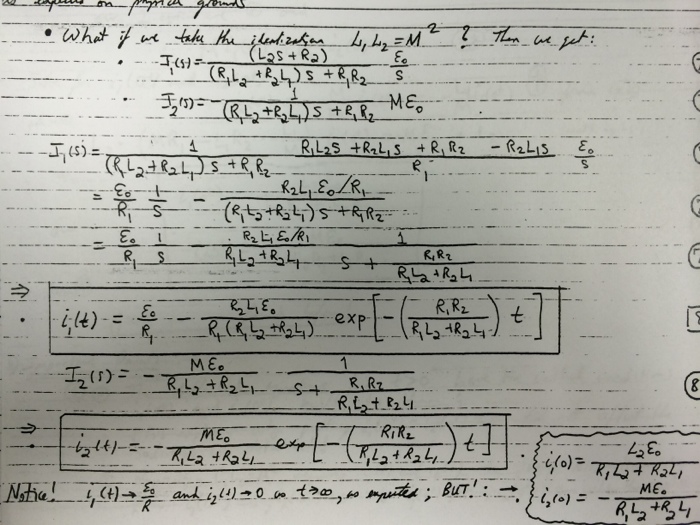 as expected on physical grounds
• What if we take the idealization L₁L₂ = M² ? Then we get:
• I₁(s) = (L₂s + R₂) / ((R₁L₂ + R₂L₁) s + R₁R₂) ε₀/s
• I₂(s) = - 1 / ((R₁L₂ + R₂L₁) s + R₁R₂) Mε₀
I₁(s) = 1 / ((R₁L₂ + R₂L₁) s + R₁R₂) (R₁L₂s + R₂L₁s + R₁R₂ - R₂L₁s) / R₁ ε₀/s
= ε₀/R₁ 1/s - (R₂L₁ε₀/R₁) / ((R₁L₂ + R₂L₁) s + R₁R₂)
= ε₀/R₁ 1/s - (R₂L₁ε₀/R₁) / (R₁L₂ + R₂L₁) 1 / (s + R₁R₂ / (R₁L₂ + R₂L₁))
⇒
• i₁(t) = ε₀/R₁ - R₂L₁ε₀ / (R₁(R₁L₂ + R₂L₁)) exp[-(R₁R₂ / (R₁L₂ + R₂L₁)) t]
I₂(s) = - Mε₀ / (R₁L₂ + R₂L₁) 1 / (s + R₁R₂ / (R₁L₂ + R₂L₁))
8
⇒
• i₂(t) = - Mε₀ / (R₁L₂ + R₂L₁) exp[-(R₁R₂ / (R₁L₂ + R₂L₁)) t]
Notice! i₁(t) → ε₀/R and i₂(t) → 0 as t→∞, as expected; BUT!: →
• i₁(0) = L₂ε₀ / (R₁L₂ + R₂L₁)
• i₂(0) = - Mε₀ / (R₁L₂ + R₂L₁)